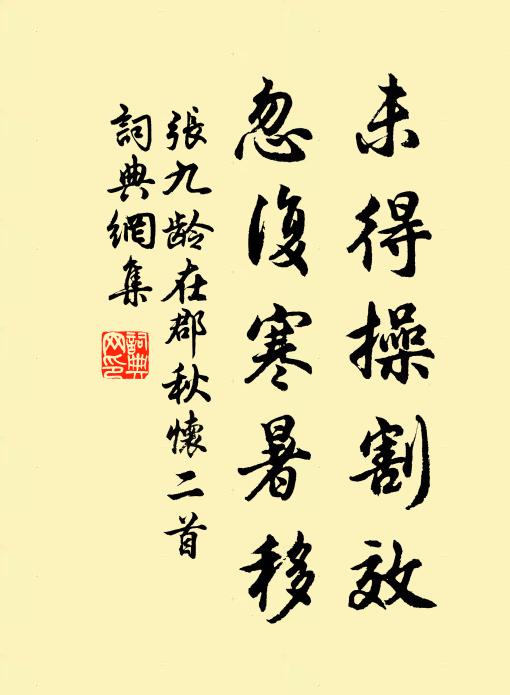 未得操割效
忽復寒暑移
張九龄在郡秋懷二首
詞典網集
詞典网印